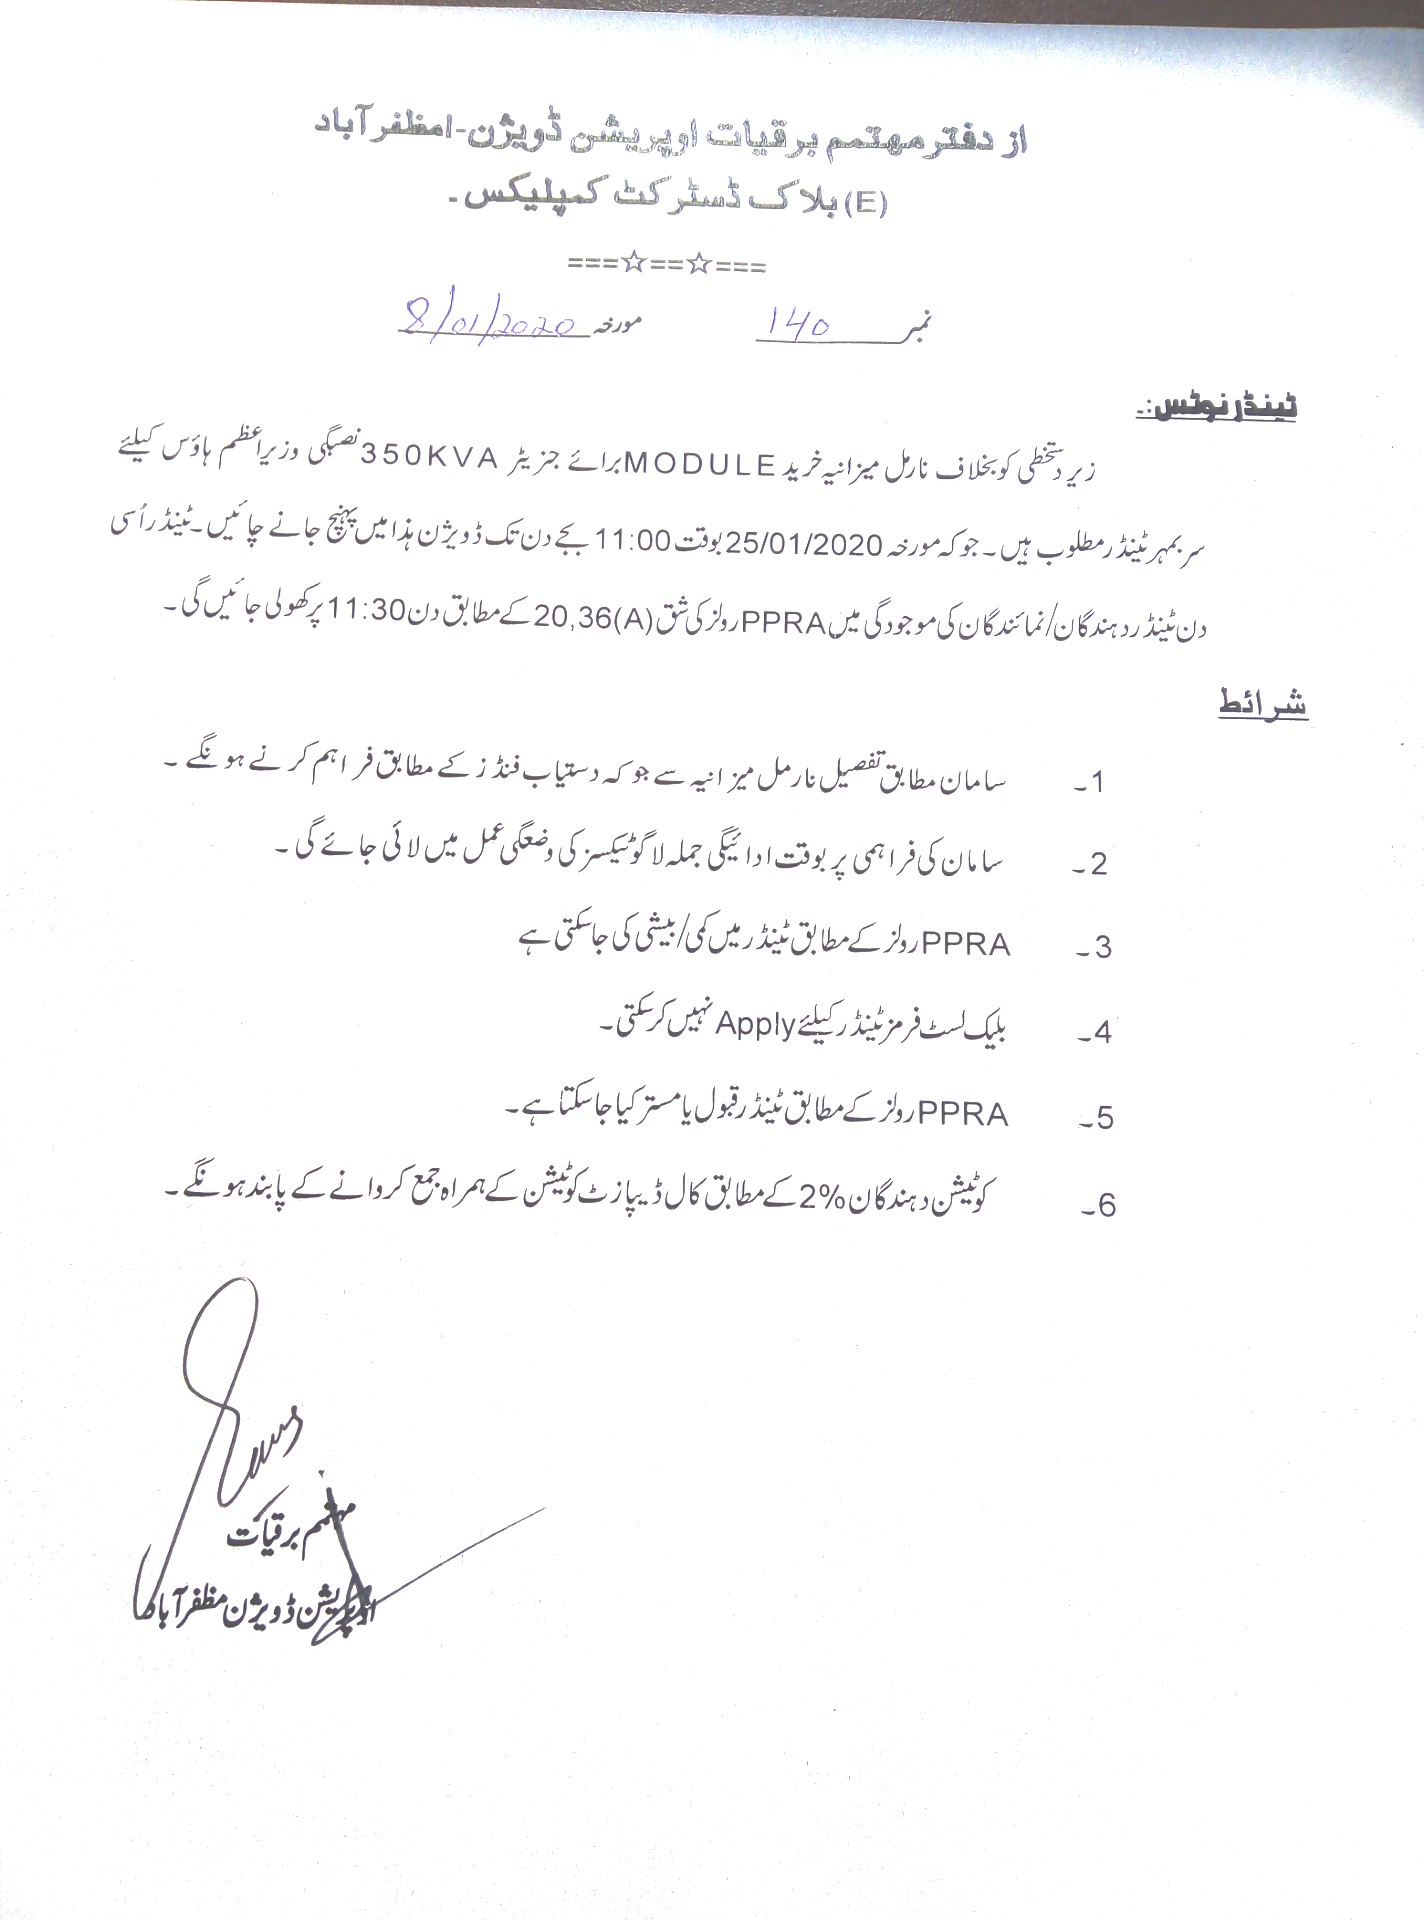 از دفتر مہتمم برقیات اوپریشن ڈویژن-امظفرآباد
(E) بلاک ڈسٹرکٹ کمپلیکس۔
===☆==☆===
نمبر 140 مورخہ 8/01/2020
ٹینڈر نوٹس:۔
زیر دستخطی کو بخلاف نارمل میزانیہ خرید MODULE برائے جنریٹر 350KVA نصبگی وزیراعظم ہاؤس کیلئے
سر بمہر ٹینڈر مطلوب ہیں۔ جو کہ مورخہ 25/01/2020 بوقت 11:00 بجے دن تک ڈویژن ہذا میں پہنچ جانے چائیں۔ ٹینڈر اُسی
دن ٹینڈر دہندگان/نمائندگان کی موجودگی میں PPRA رولز کی شق 20,36(A) کے مطابق دن 11:30 پر کھولی جائیں گی۔
شرائط
1۔ سامان مطابق تفصیل نارمل میزانیہ سے جو کہ دستیاب فنڈز کے مطابق فراہم کرنے ہونگے۔
2۔ سامان کی فراہمی پر بوقت ادائیگی جملہ لاگو ٹیکسز کی وضعگی عمل میں لائی جائے گی۔
3۔ PPRA رولز کے مطابق ٹینڈر میں کمی/بیشی کی جاسکتی ہے
4۔ بلیک لسٹ فرمز ٹینڈر کیلئے Apply نہیں کرسکتی۔
5۔ PPRA رولز کے مطابق ٹینڈر قبول یا مستر کیا جاسکتا ہے۔
6۔ کوٹیشن دہندگان 2% کے مطابق کال ڈیپازٹ کوٹیشن کے ہمراہ جمع کروانے کے پابند ہونگے۔
مہتمم برقیات
اوپریشن ڈویژن مظفرآباد